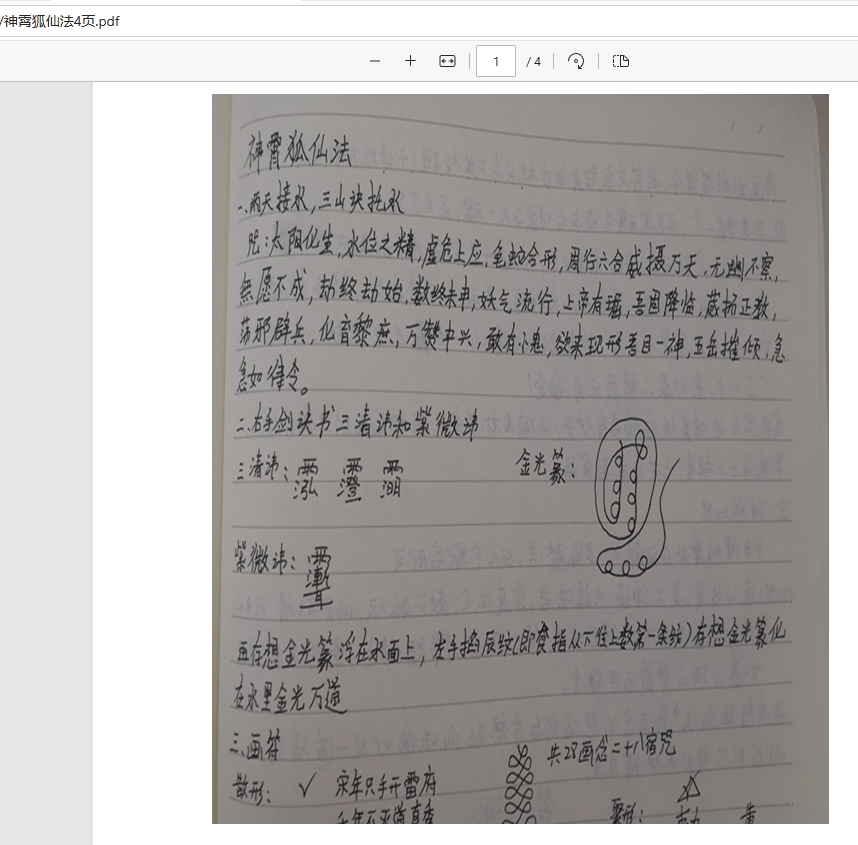 /神霄狐仙法4页.pdf
1 / 4
神霄狐仙法
一、两天接水,三山诀托水
咒:太阳化生,水位之精,虚危上应,龟蛇合形,周行六合,威摄万天,无幽不察,
無愿不成,劫终劫始,数终未申,妖气流行,上帝有 吾固降临,葳扬正教,
荡邪辟兵,化育黎庶,万赞中兴,敢有小鬼,欲来现形吾目一神,五岳摧倾,急
急如律令。
二、右手剑诀书三清讳和紫微讳
三清讳:
金光篆:
紫微讳:
再存想金光篆浮在水面上,左手掐辰纹(即食指从下往上数第一条纹)存想金光篆化
在水里金光万道
三、画符
共28画念二十八宿咒
散形: ✓ 宋年只手开雷府
聚形: